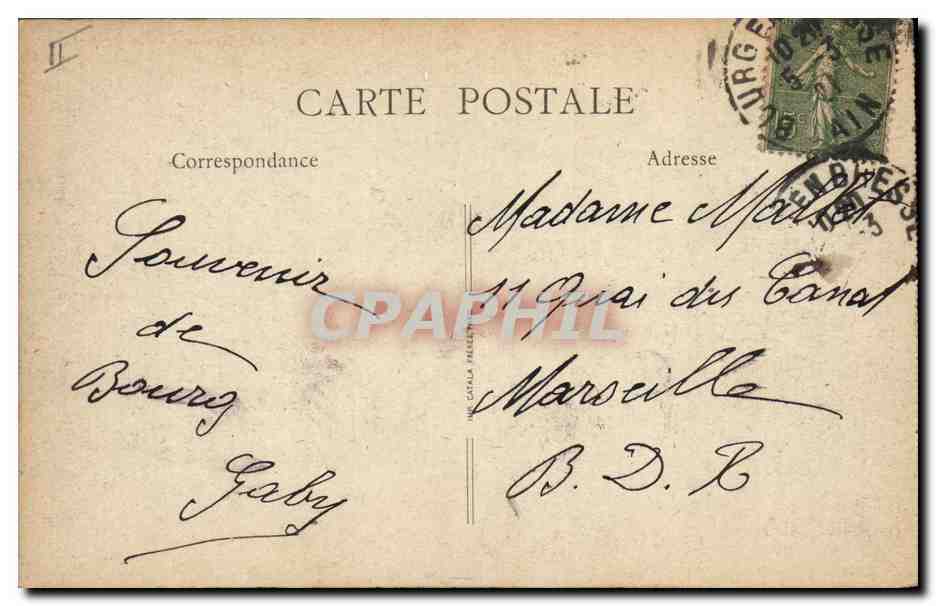 II
CARTE POSTALE
Correspondance
Adresse
Souvenir
de
Bourg
Gaby
Madame Mallet
11 Quai du Canal
Marseille
B. D. R
IMP. CATALA FRERES
CPAPHIL
EN BRESSE
AIN